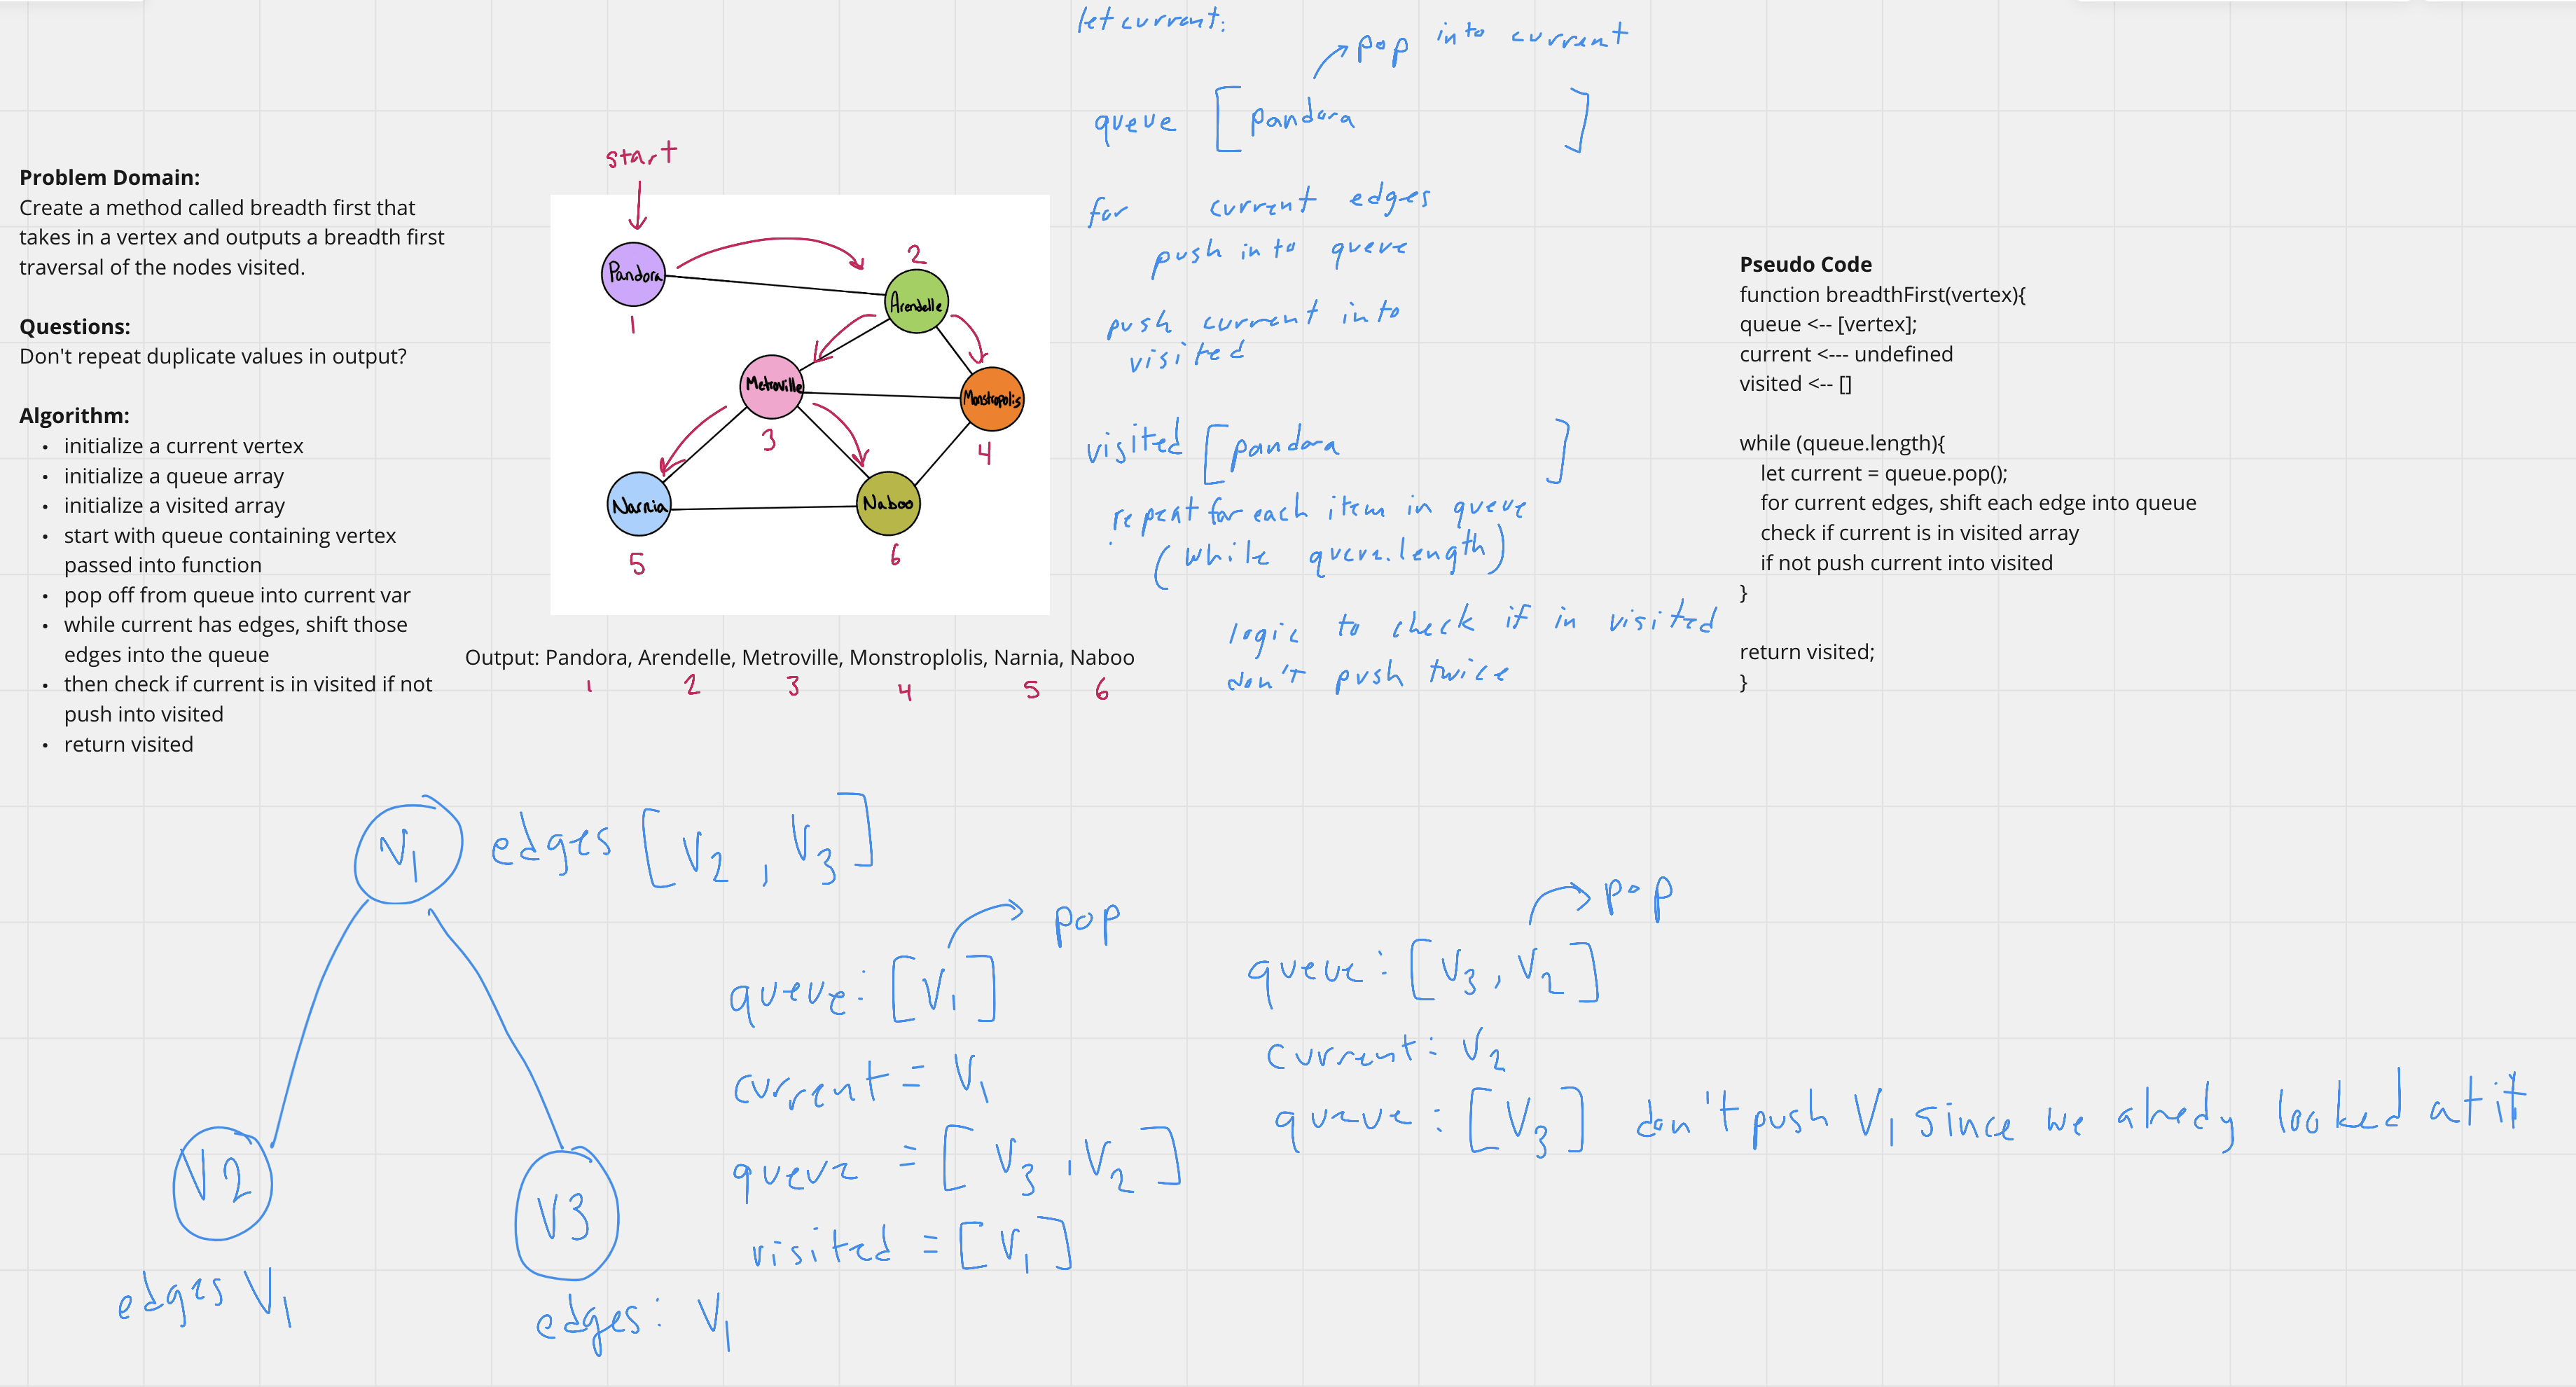 Problem Domain:
Create a method called breadth first that
takes in a vertex and outputs a breadth first
traversal of the nodes visited.
Questions:
Don't repeat duplicate values in output?
Algorithm:
• initialize a current vertex
• initialize a queue array
• initialize a visited array
• start with queue containing vertex
passed into function
• pop off from queue into current var
• while current has edges, shift those
edges into the queue
• then check if current is in visited if not
push into visited
• return visited
start
Pandora
1
2
Arendelle
Metroville
3
Monstropolis
4
Narnia
5
Naboo
6
Output: Pandora, Arendelle, Metroville, Monstroplolis, Narnia, Naboo
1 2 3 4 5 6
let current:
pop into current
queue [pandora ]
for current edges
push into queue
push current into
visited
visited [pandora ]
repeat for each item in queue
(while queue.length)
logic to check if in visited
don't push twice
Pseudo Code
function breadthFirst(vertex){
queue <-- [vertex];
current <--- undefined
visited <-- []
while (queue.length){
let current = queue.pop();
for current edges, shift each edge into queue
check if current is in visited array
if not push current into visited
}
return visited;
}
V1 edges [V2, V3]
V2
edges V1
V3
edges: V1
pop
queue: [V1]
current = V1
queue = [V3, V2]
visited = [V1]
pop
queue: [V3, V2]
current: V2
queue: [V3] don't push V1 since we alredy looked at it